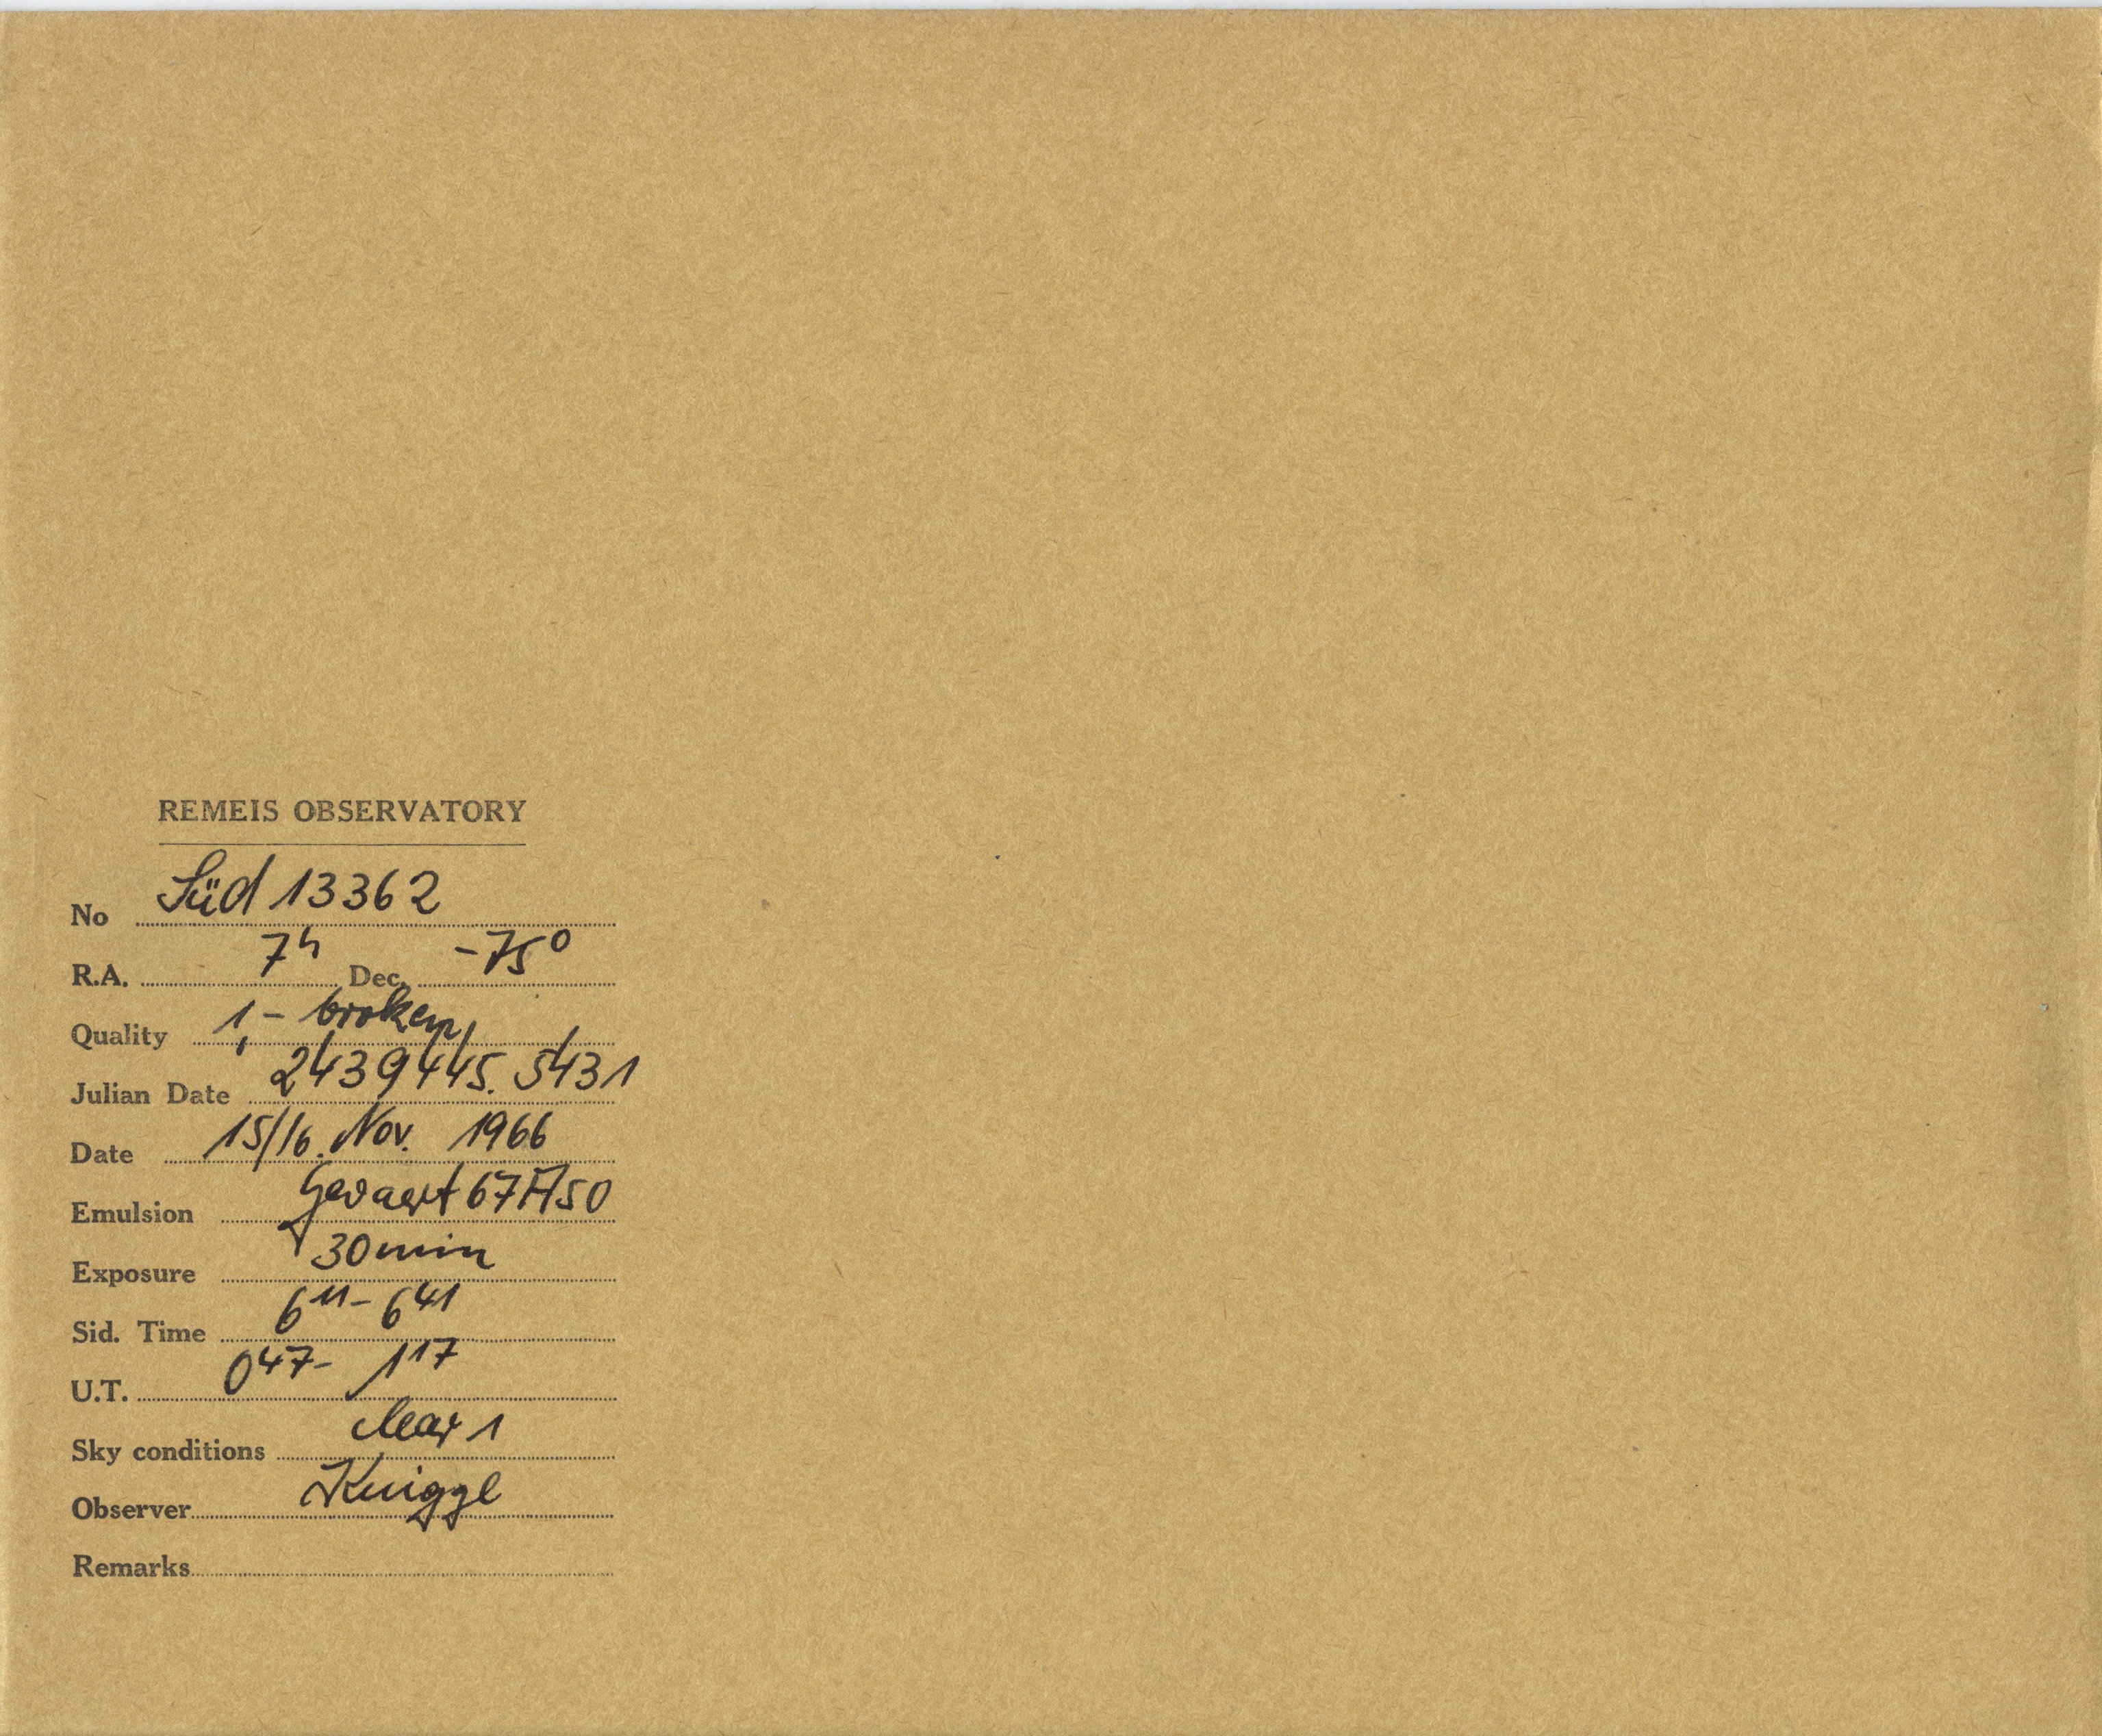 REMEIS OBSERVATORY
No Süd 13362
R.A. 7h Dec. -75°
Quality 1- broken
Julian Date 2439445.5431
Date 15/16. Nov. 1966
Emulsion Gevaert 67A50
Exposure 30min
Sid. Time 6 11 - 6 41
U.T. 0 47 - 1 17
Sky conditions clear 1
Observer Kniggl
Remarks